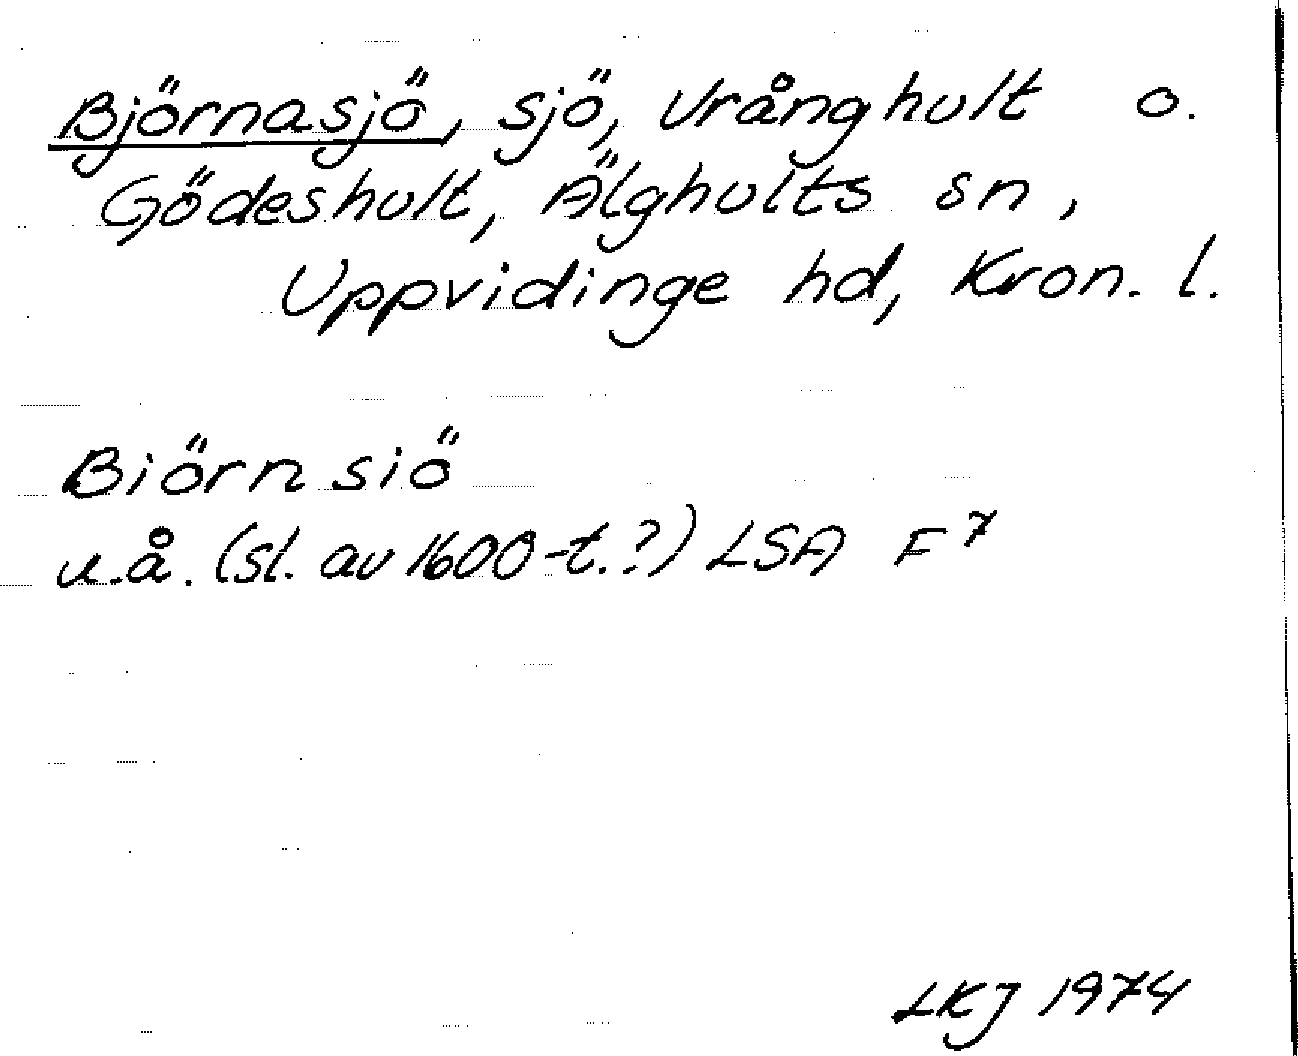 Björnasjö, sjö, Vrånghult o.
Gödeshult, Älghults sn,
Uppvidinge hd, Kron. l.
Biörn siö
u.å. (sl. av 1600-t.?) LSA F⁷
LKJ 1974